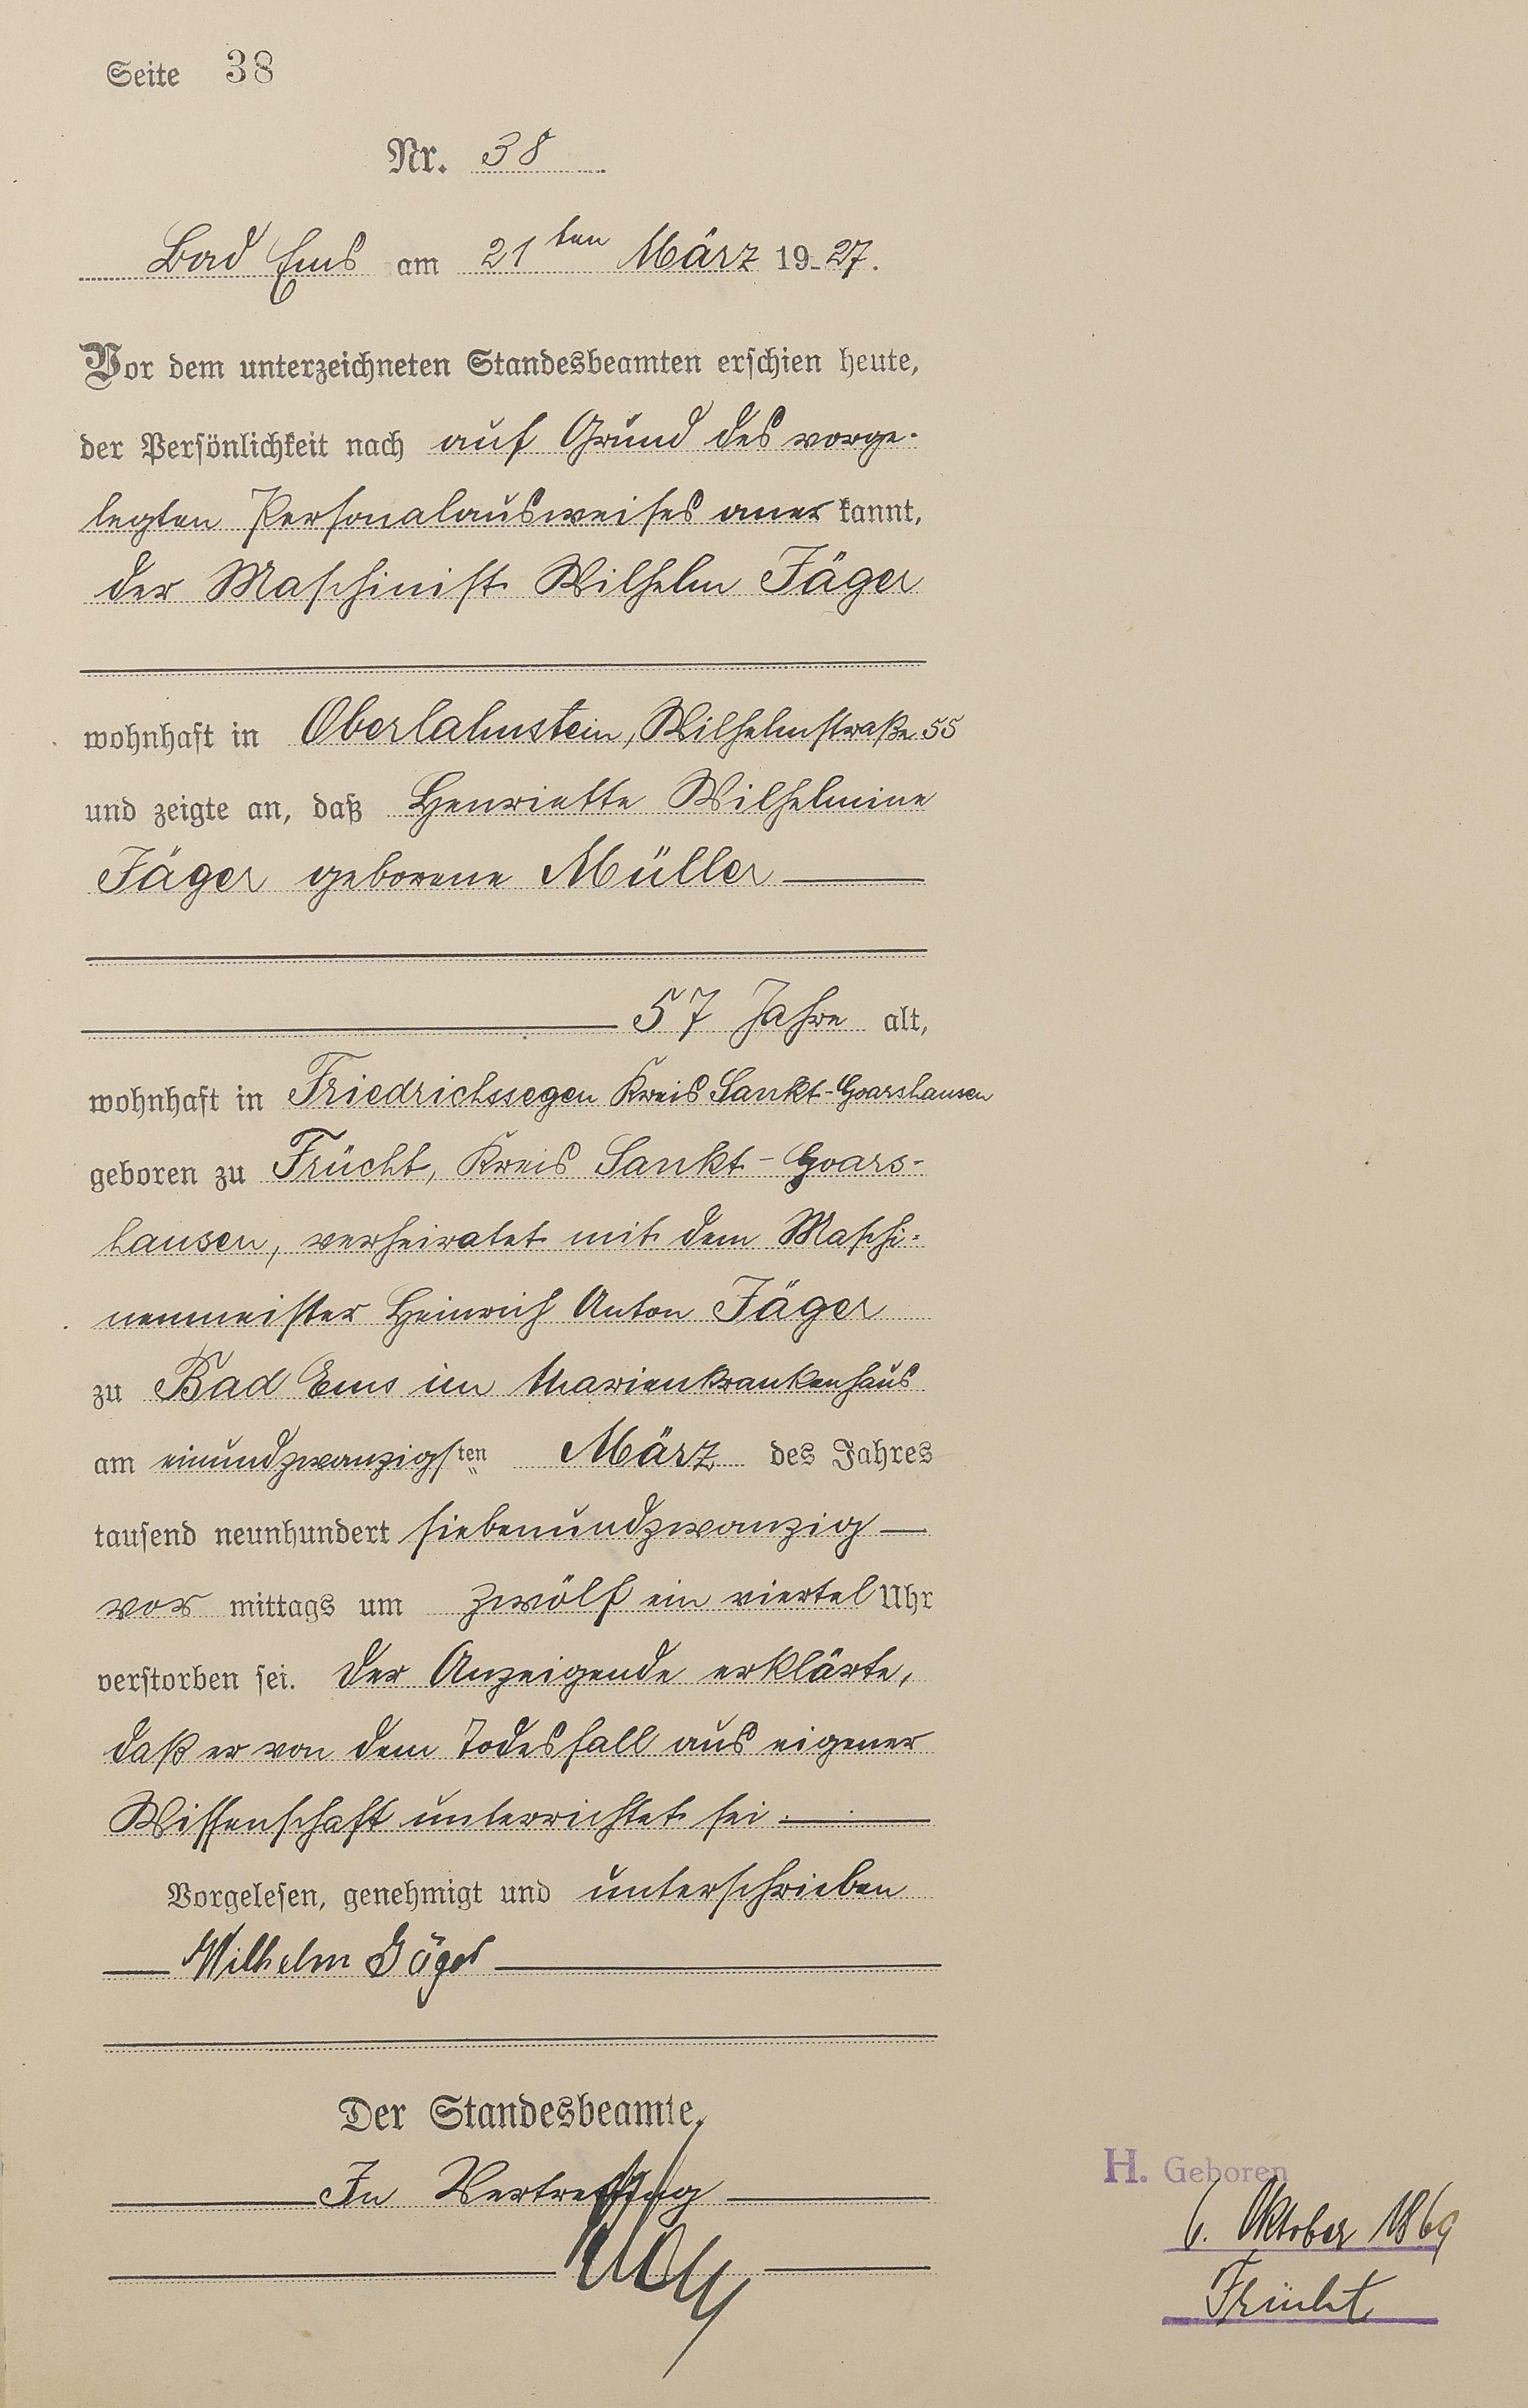 Seite 38
Nr. 38
Bad Ems am 21ten März 1927.
Vor dem unterzeichneten Standesbeamten erschien heute,
der Persönlichkeit nach auf Grund des vorge-
legten Personalausweises aner kannt,
der Maschinist Wilhelm Jäger
wohnhaft in Oberlahnstein, Wilhelmstraße 55
und zeigte an, daß Henriette Wilhelmine
Jäger geborene Müller
57 Jahre alt,
wohnhaft in Friedrichssegen Kreis Sankt-Goarshausen
geboren zu Frücht, Kreis Sankt-Goars-
hausen, verheiratet mit dem Maschi-
nenmeister Heinrich Anton Jäger
zu Bad Ems im Marienkrankenhaus
am einundzwanzigsten März des Jahres
tausend neunhundert siebenundzwanzig
vor mittags um zwölf ein viertel Uhr
verstorben sei. Der Anzeigende erklärte,
daß er von dem Todesfall aus eigener
Wissenschaft unterrichtet sei.
Vorgelesen, genehmigt und unterschrieben
Wilhelm Jäger
Der Standesbeamte.
In Vertretung
H. Geboren
6. Oktober 1869
Frücht